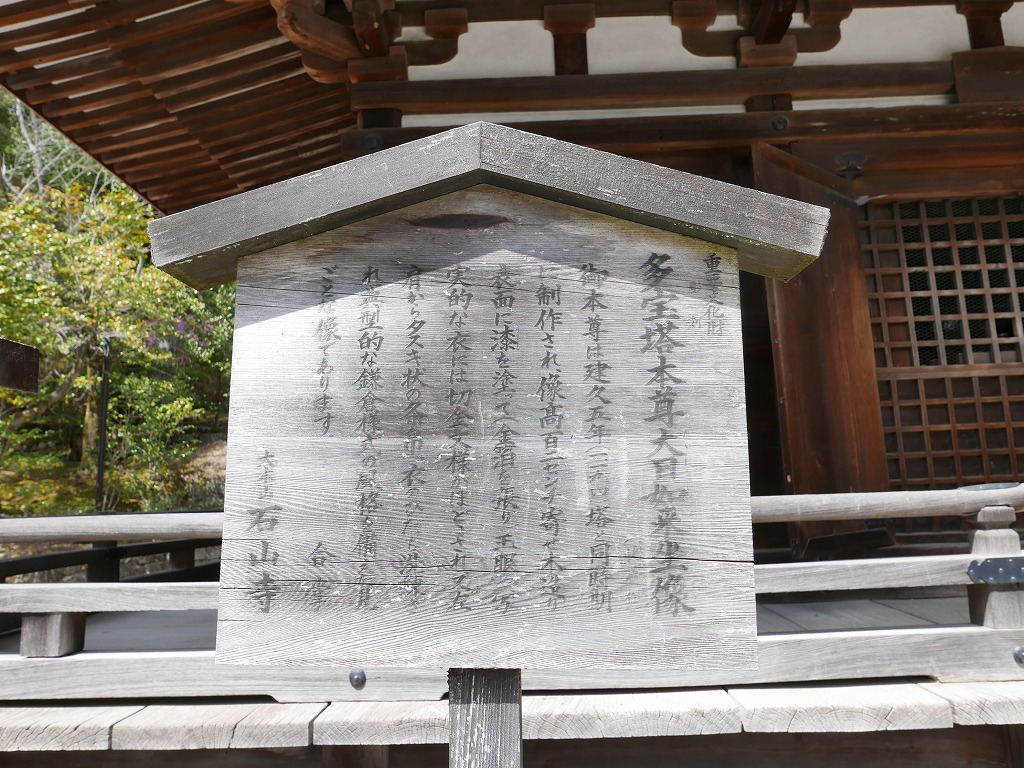 重要文化財
多宝塔本尊大日如来坐像
御本尊は建久五年(一一九四)塔と同時期
に制作され像高百二センチ寄せ木造り
表面に漆を塗って金泊を張り玉眼
実的な衣には切金文様がほどこされ
肩からタスキ状の条帛
れ典型的な鎌倉様式の風格を備え
ごとな像であります。
合掌
大本山 石山寺